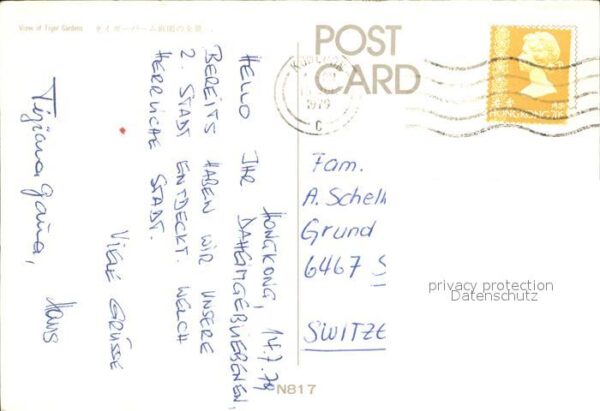 Views of Tiger Gardens タイガーバーム庭園の全景
POST
CARD
KOWLOON
1979
C
HONG KONG 香港
HONGKONG, 14.7.79
HELLO IHR DAHEIMGEBLIEBENEN,
BEREITS HABEN WIR UNSERE
2. STADT ENTDECKT. WELCH
HERRLICHE STADT.
VIELE GRÜSSE
Hans
Fam.
A. Schell
Grund
6467 S
SWITZE
privacy protection
Datenschutz
N817